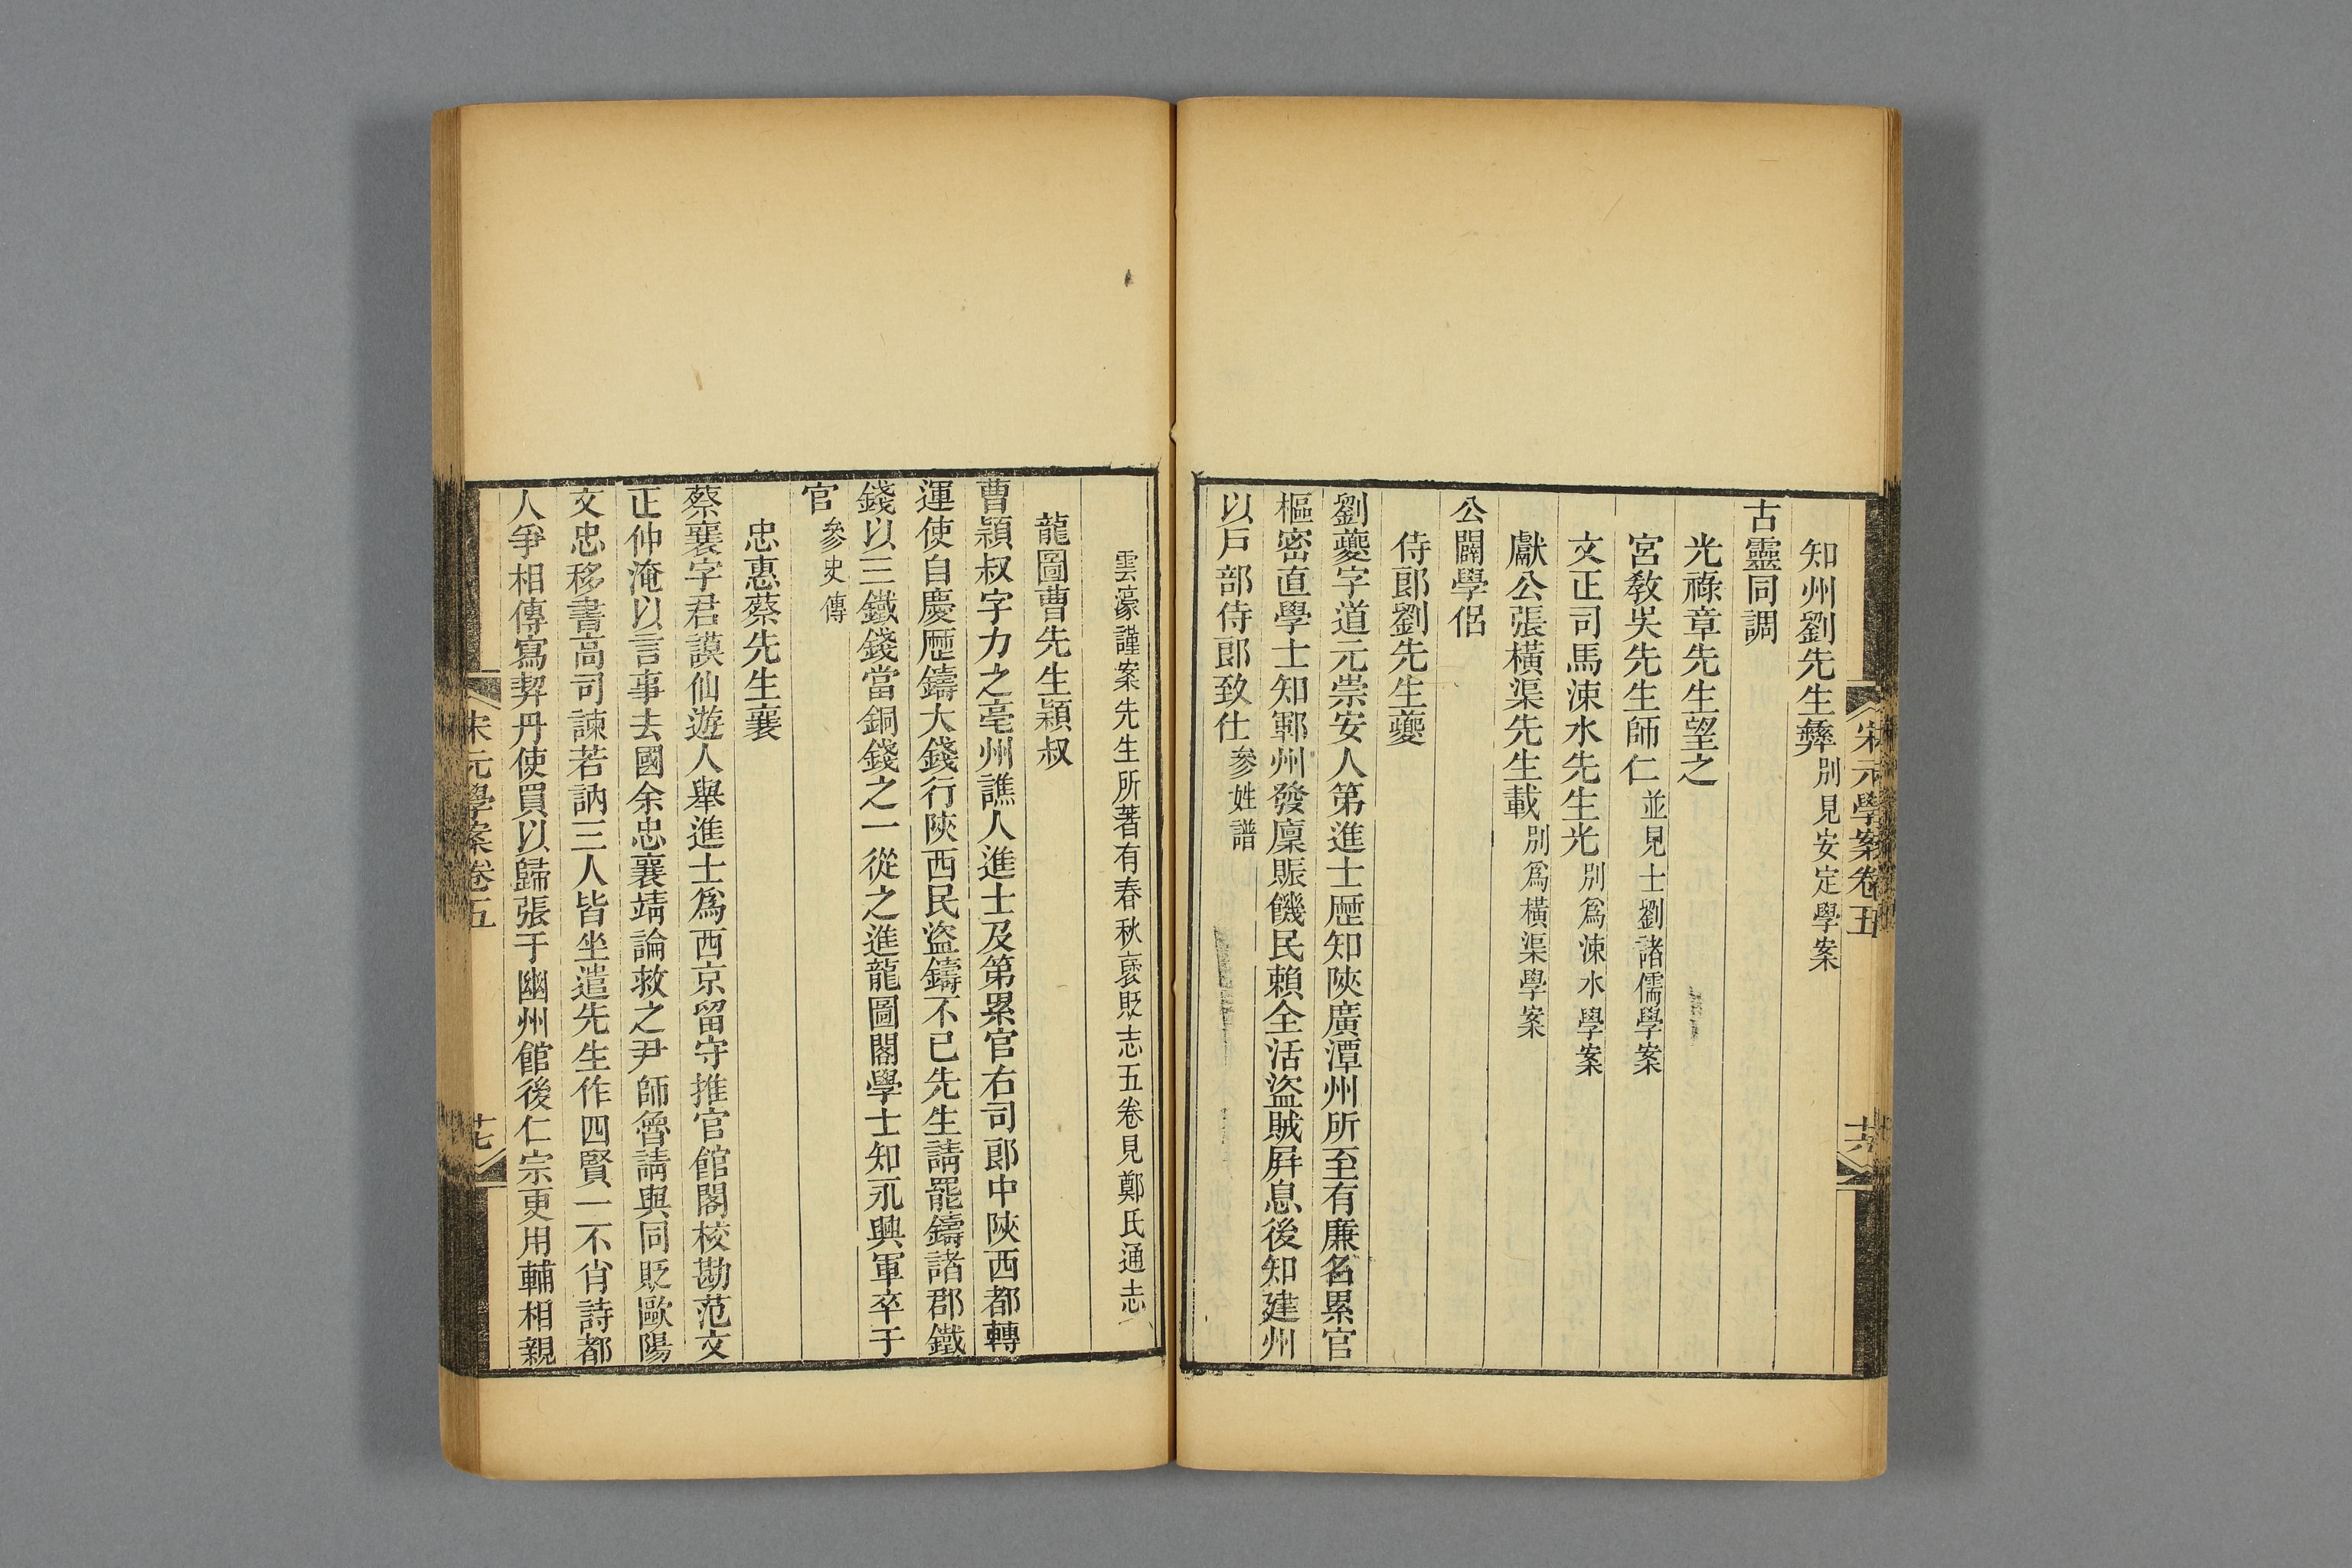 宋元學案卷五
十六
知州劉先生彝別見安定學案
古靈同調
光祿章先生望之
宮敎吳先生師仁並見士劉諸儒學案
文正司馬涑水先生光別爲涑水學案
獻公張橫渠先生載別爲橫渠學案
公闢學侶
侍郎劉先生夔
劉夔字道元崇安人第進士歷知陝廣潭州所至有廉名累官
樞密直學士知鄆州發廩賑饑民賴全活盜賊屛息後知建州
以戶部侍郎致仕參姓譜
雲濠謹案先生所著有春秋褒貶志五卷見鄭氏通志
龍圖曹先生穎叔
曹穎叔字力之亳州譙人進士及第累官右司郎中陝西都轉
運使自慶歷鑄大錢行陝西民盜鑄不已先生請罷鑄諸郡鐵
錢以三鐵錢當銅錢之一從之進龍圖閣學士知永興軍卒于
官參史傳
忠惠蔡先生襄
蔡襄字君謨仙遊人舉進士爲西京留守推官館閣校勘范文
正仲淹以言事去國余忠襄靖論救之尹師魯請與同貶歐陽
文忠移書高司諫若訥三人皆坐遣先生作四賢一不肖詩都
人爭相傳寫契丹使買以歸張于幽州館後仁宗更用輔相親
宋元學案卷五
十七